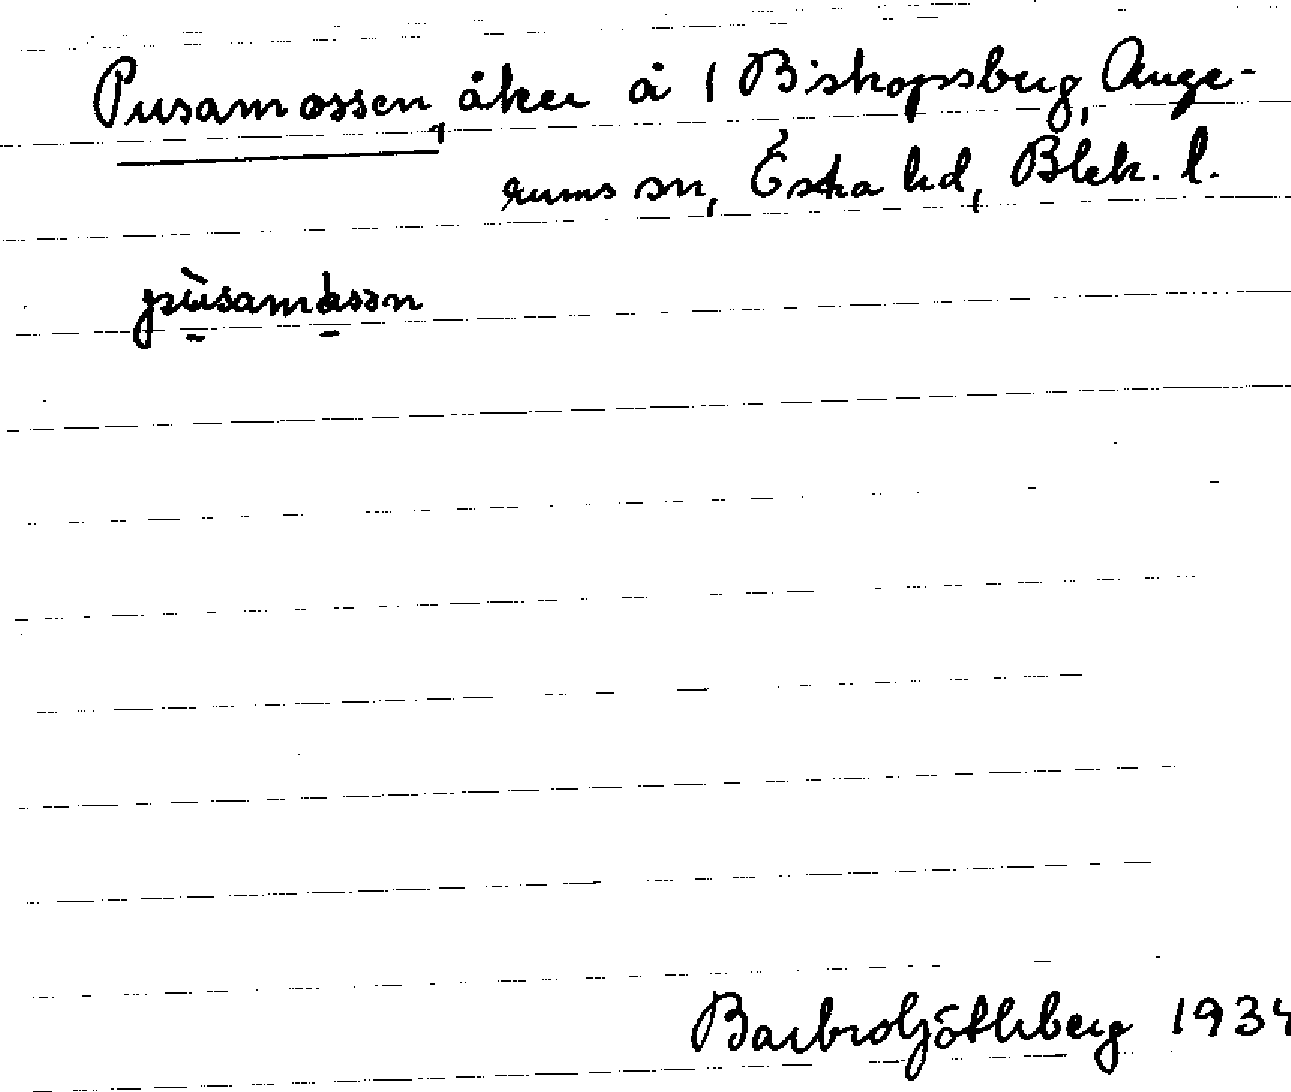 Pusamossen, åker å 1 Biskopsberg, Ange-
rums sn, Östra hd, Blek. l.
pùsamåsən
Barbro Götlberg 1934